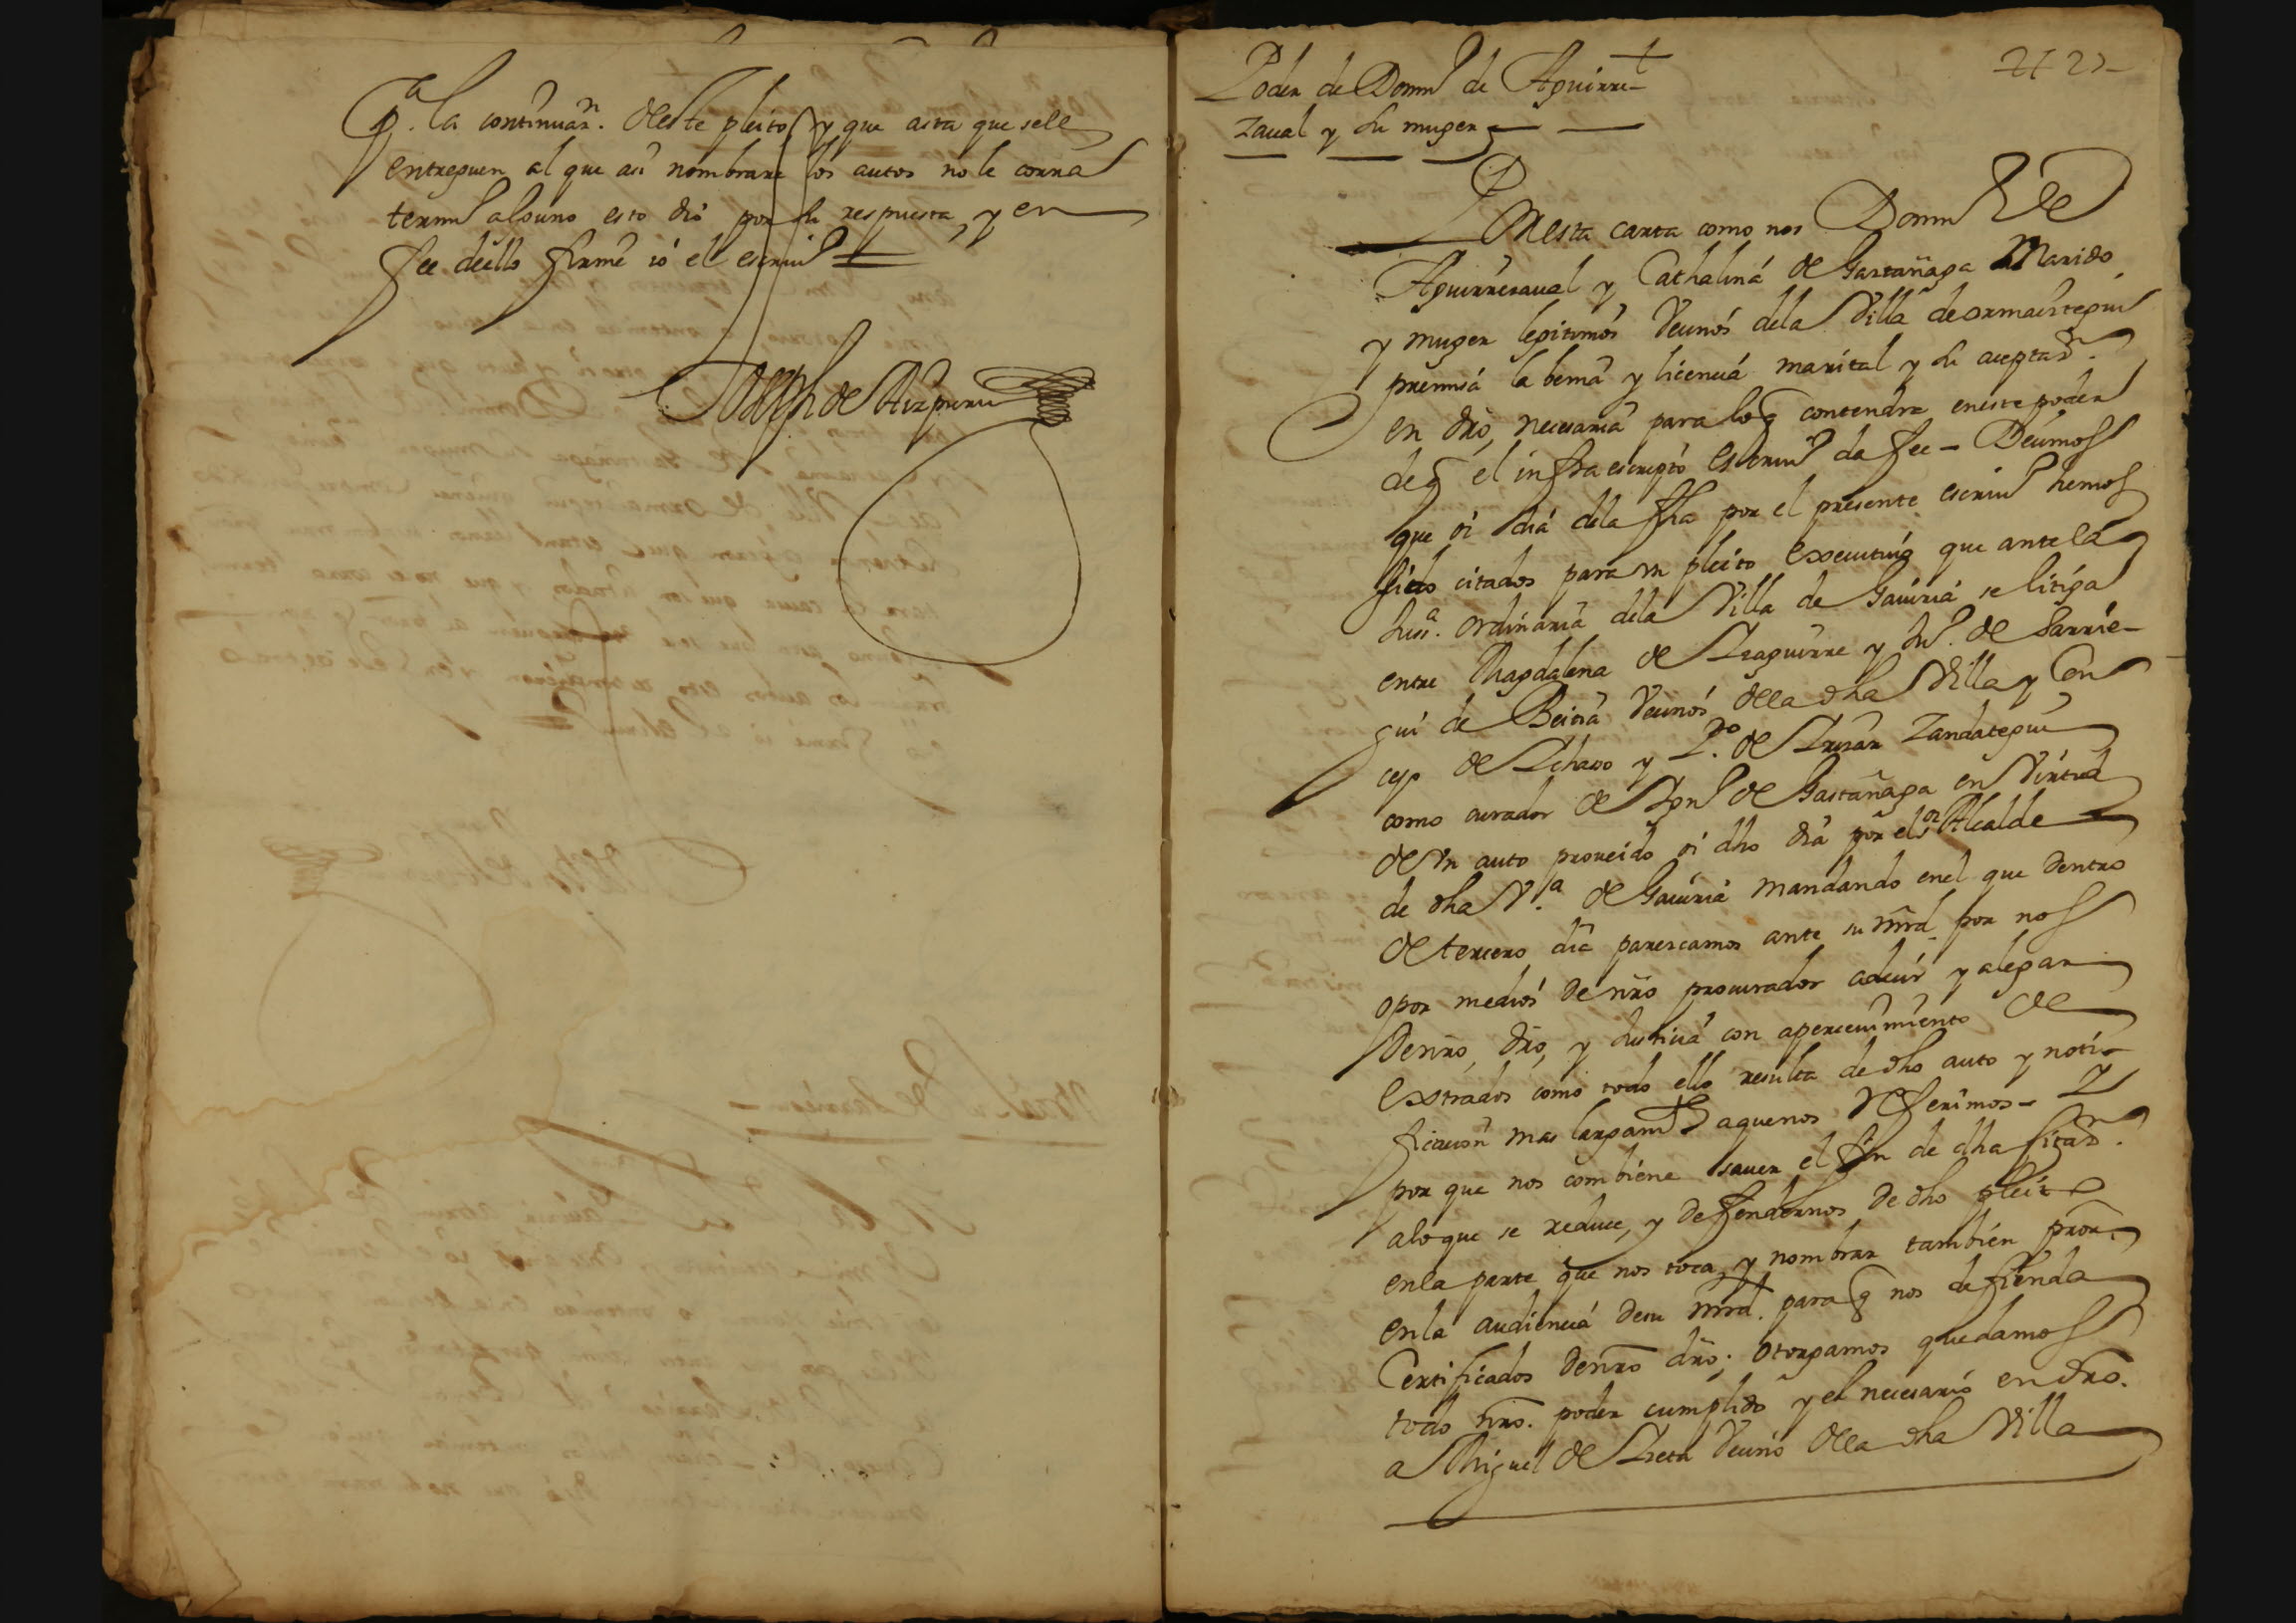 Pª. la continuaⁿ. deste pleito y que asta que sele
entreguen al que asi nombrare los autos no le corra
termⁿ alguno esto dió por su respuesta, y en
fee deello firme ió el escriuⁿ
Joseph de Aizpuru
Poder de Domⁿ de Aguirre-
zaual y su muger
21 22
Por esta carta como nos Domⁿ de
Aguirresaual y Cathalina de Gastañaga Marido
y muger legitimos vecinos dela Villa de ormaistegui
premisa la benia y licencia marital y su aceptaⁿ.
en dro, necesaria para loq̃ contendra eneste poder
deq̃ el infraescripto escriuⁿ da fee - Decimos
que oi dia dela fha por el presente escriuⁿ hemos
sido citados para vn pleito executiuo que ante la
Jusª. ordinaria dela Villa de Gauiria se litiga
entre Magdalena de Izaguirre y Juº. de Sarrie-
gui de Beitia vecinos de la dha Villa y Con
cep. de Lcharo y Pº. de Irisar Zandategui
como curador de Ignº de Gastañaga en Virtud
de vn auto proueido oi dho dia por els.ᵒʳ Alcalde
de dha Vª. de Gauiria mandando enel que dentro
de tercero dia parescamos ante su mrd. por nos
o por medios de nro procurador adecir y alegar
de nro, dro, y Justicia con aperceuimiento de
extrados como todo ello resulta de dho auto y noti-
ficacion mas largamᵗᵉ aquenos Referimos - Y
por que nos combiene sauer el fin de dha sitaⁿ.
alo que se reduce, y deffendernos de dho pleito
en la parte que nos toca y nombrar tambien pror.
en la audiencia de su mrd. paraq̃ nos defienda
Certificados de nro dro; otorgamos quedamos
todo nro. poder cumplido y el necesario en dro.
a Miguel de Ireta vecino de la dha Villa